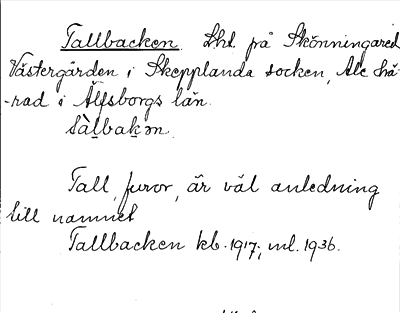 Tallbacken Lht. på Skönningared
Västergården i Skepplanda socken, Ale hä-
-rad i Älfsborgs län.
Tall, furor, är väl anledning
till namnet
Tallbacken kb. 1917; ml. 1936.